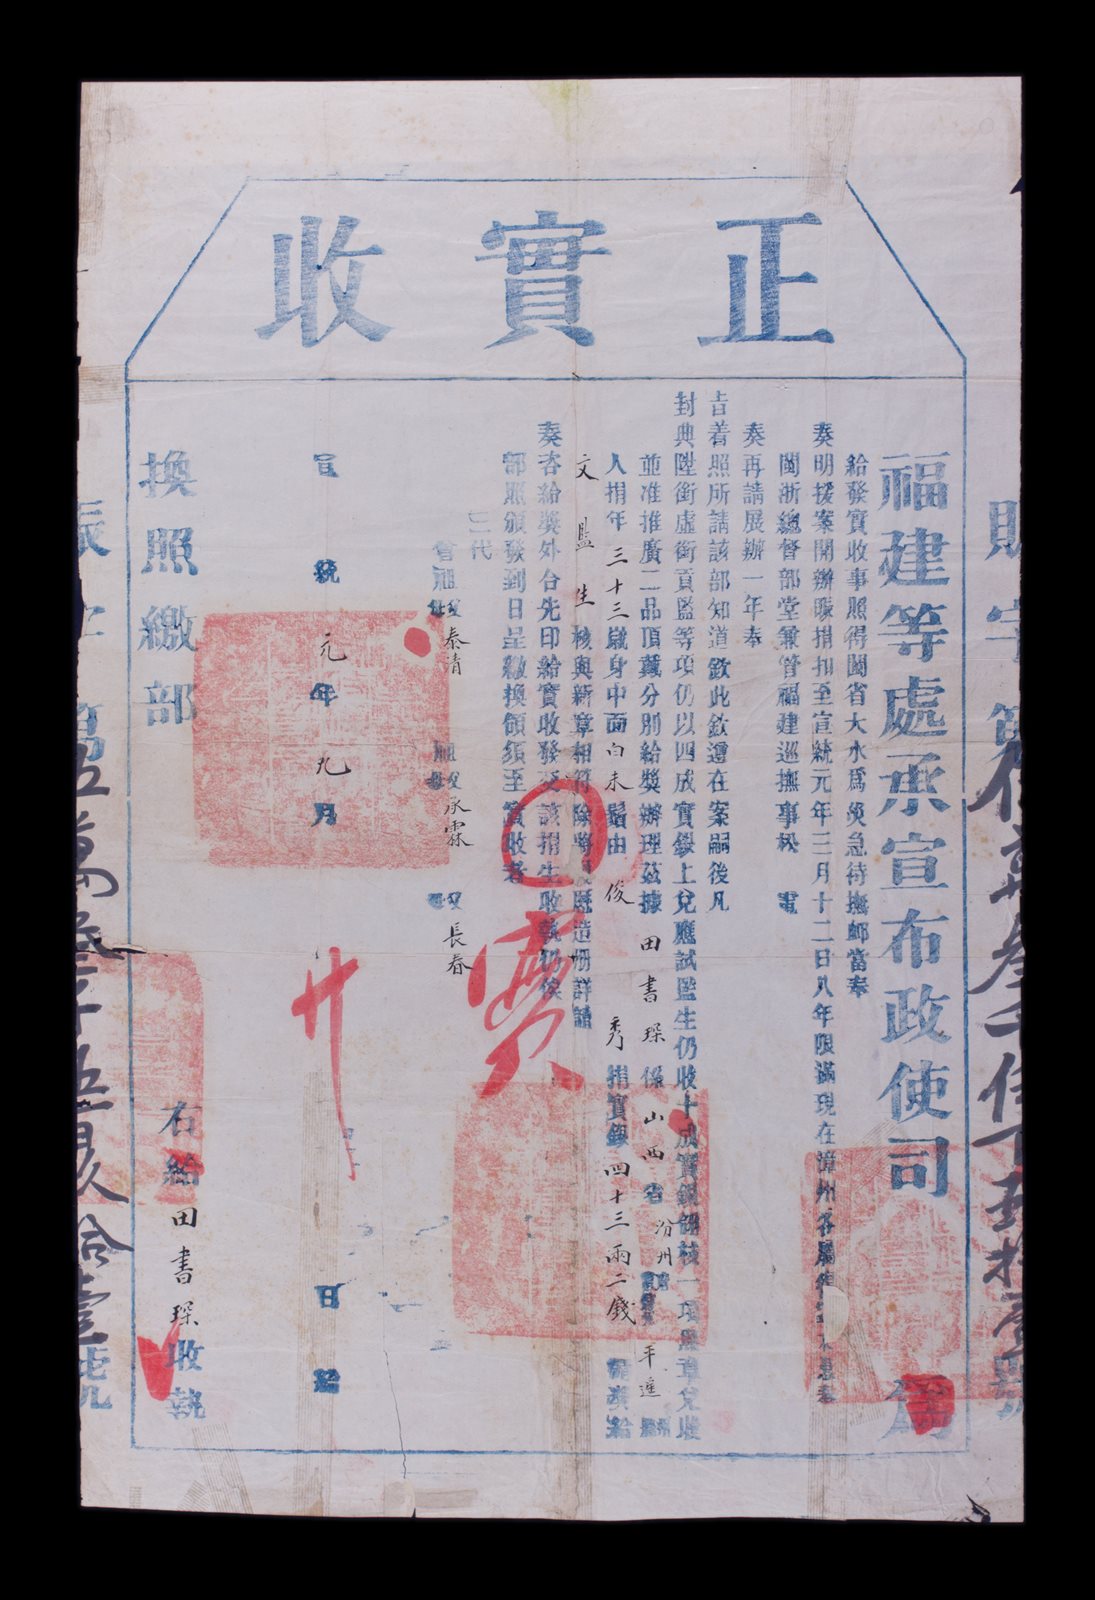 正實收
福建等處承宣布政使司為
給發實收事照得閩省大水為災急待撫卹當奉
奏明援案開辦賑捐扣至宣統元年三月十二日八年限滿現在漳州各屬
閩浙總督部堂兼管福建巡撫事松 電
奏再請展辦一年奉
旨着照所請該部知道欽此欽遵在案嗣後凡
封典陞銜虛銜貢監等項仍以四成實銀上兌應試監生仍收十成實銀一項照章兌收
並准推廣二品頂戴分別給獎辦理茲據 田書琛係山西省汾州 平遙
人捐年三十三歲身中面白未鬚由俊秀捐實銀四十三兩二錢 獎給
文監生核與新章相符除將 造冊詳請
奏咨給獎外合先印給實收發交該捐生收執仍俟
部照頒發到日呈繳換領須至實收者
三代 曾祖 泰清 祖 永霖 長春
宣統元年九月 廿 日給
實
右給田書琛收執
換照繳部